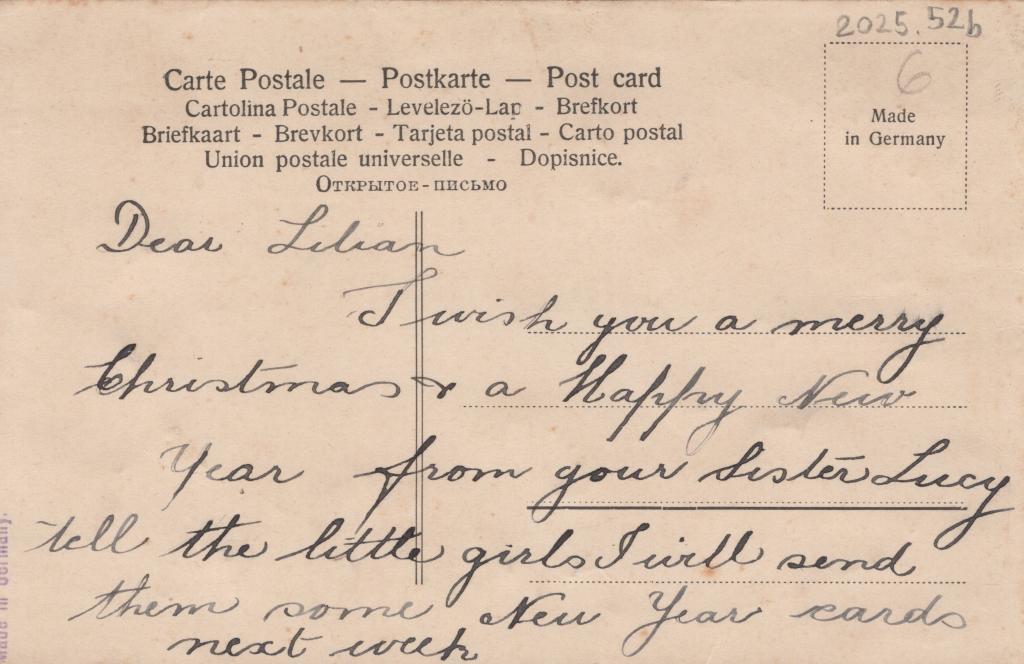 2025.52b
6
Carte Postale — Postkarte — Post card
Cartolina Postale - Levelezö-Lap - Brefkort
Briefkaart - Brevkort - Tarjeta postal - Carto postal
Union postale universelle - Dopisnice.
Открытое-письмо
Made
in Germany
Dear Lilian
I wish you a merry
Christmas & a Happy New
Year from your Sister Lucy
tell the little girls I will send
them some New Year cards
next week
Made in Germany.